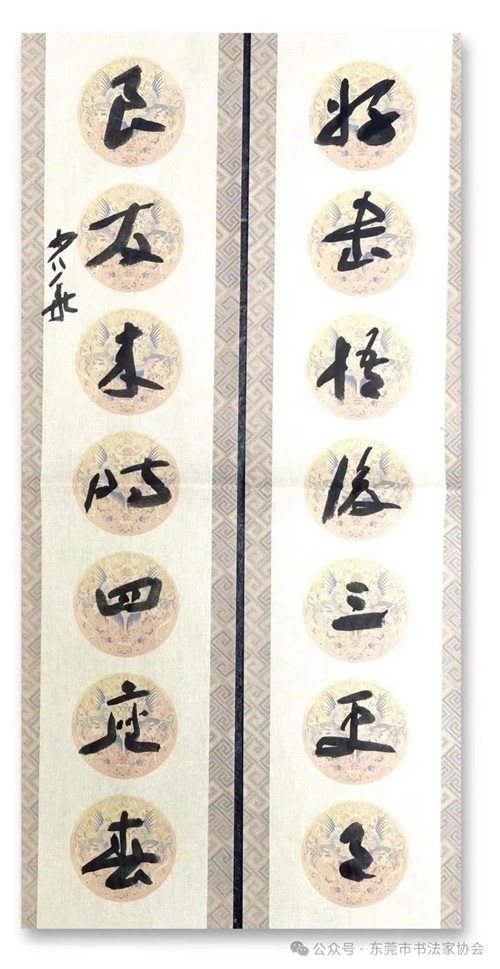 好書悟後三更月
良友来時四座春
公众号·东莞市书法家协会